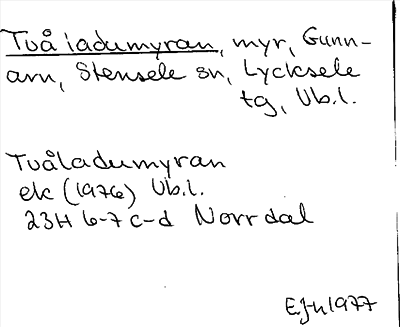 Två ladumyran, myr, Gunn-
arn, Stensele sn, Lycksele
tg, Vb.l.
Tvåladumyran
ek (1976) Vb.l.
23H 6-7 c-d Norrdal
EJn 1977